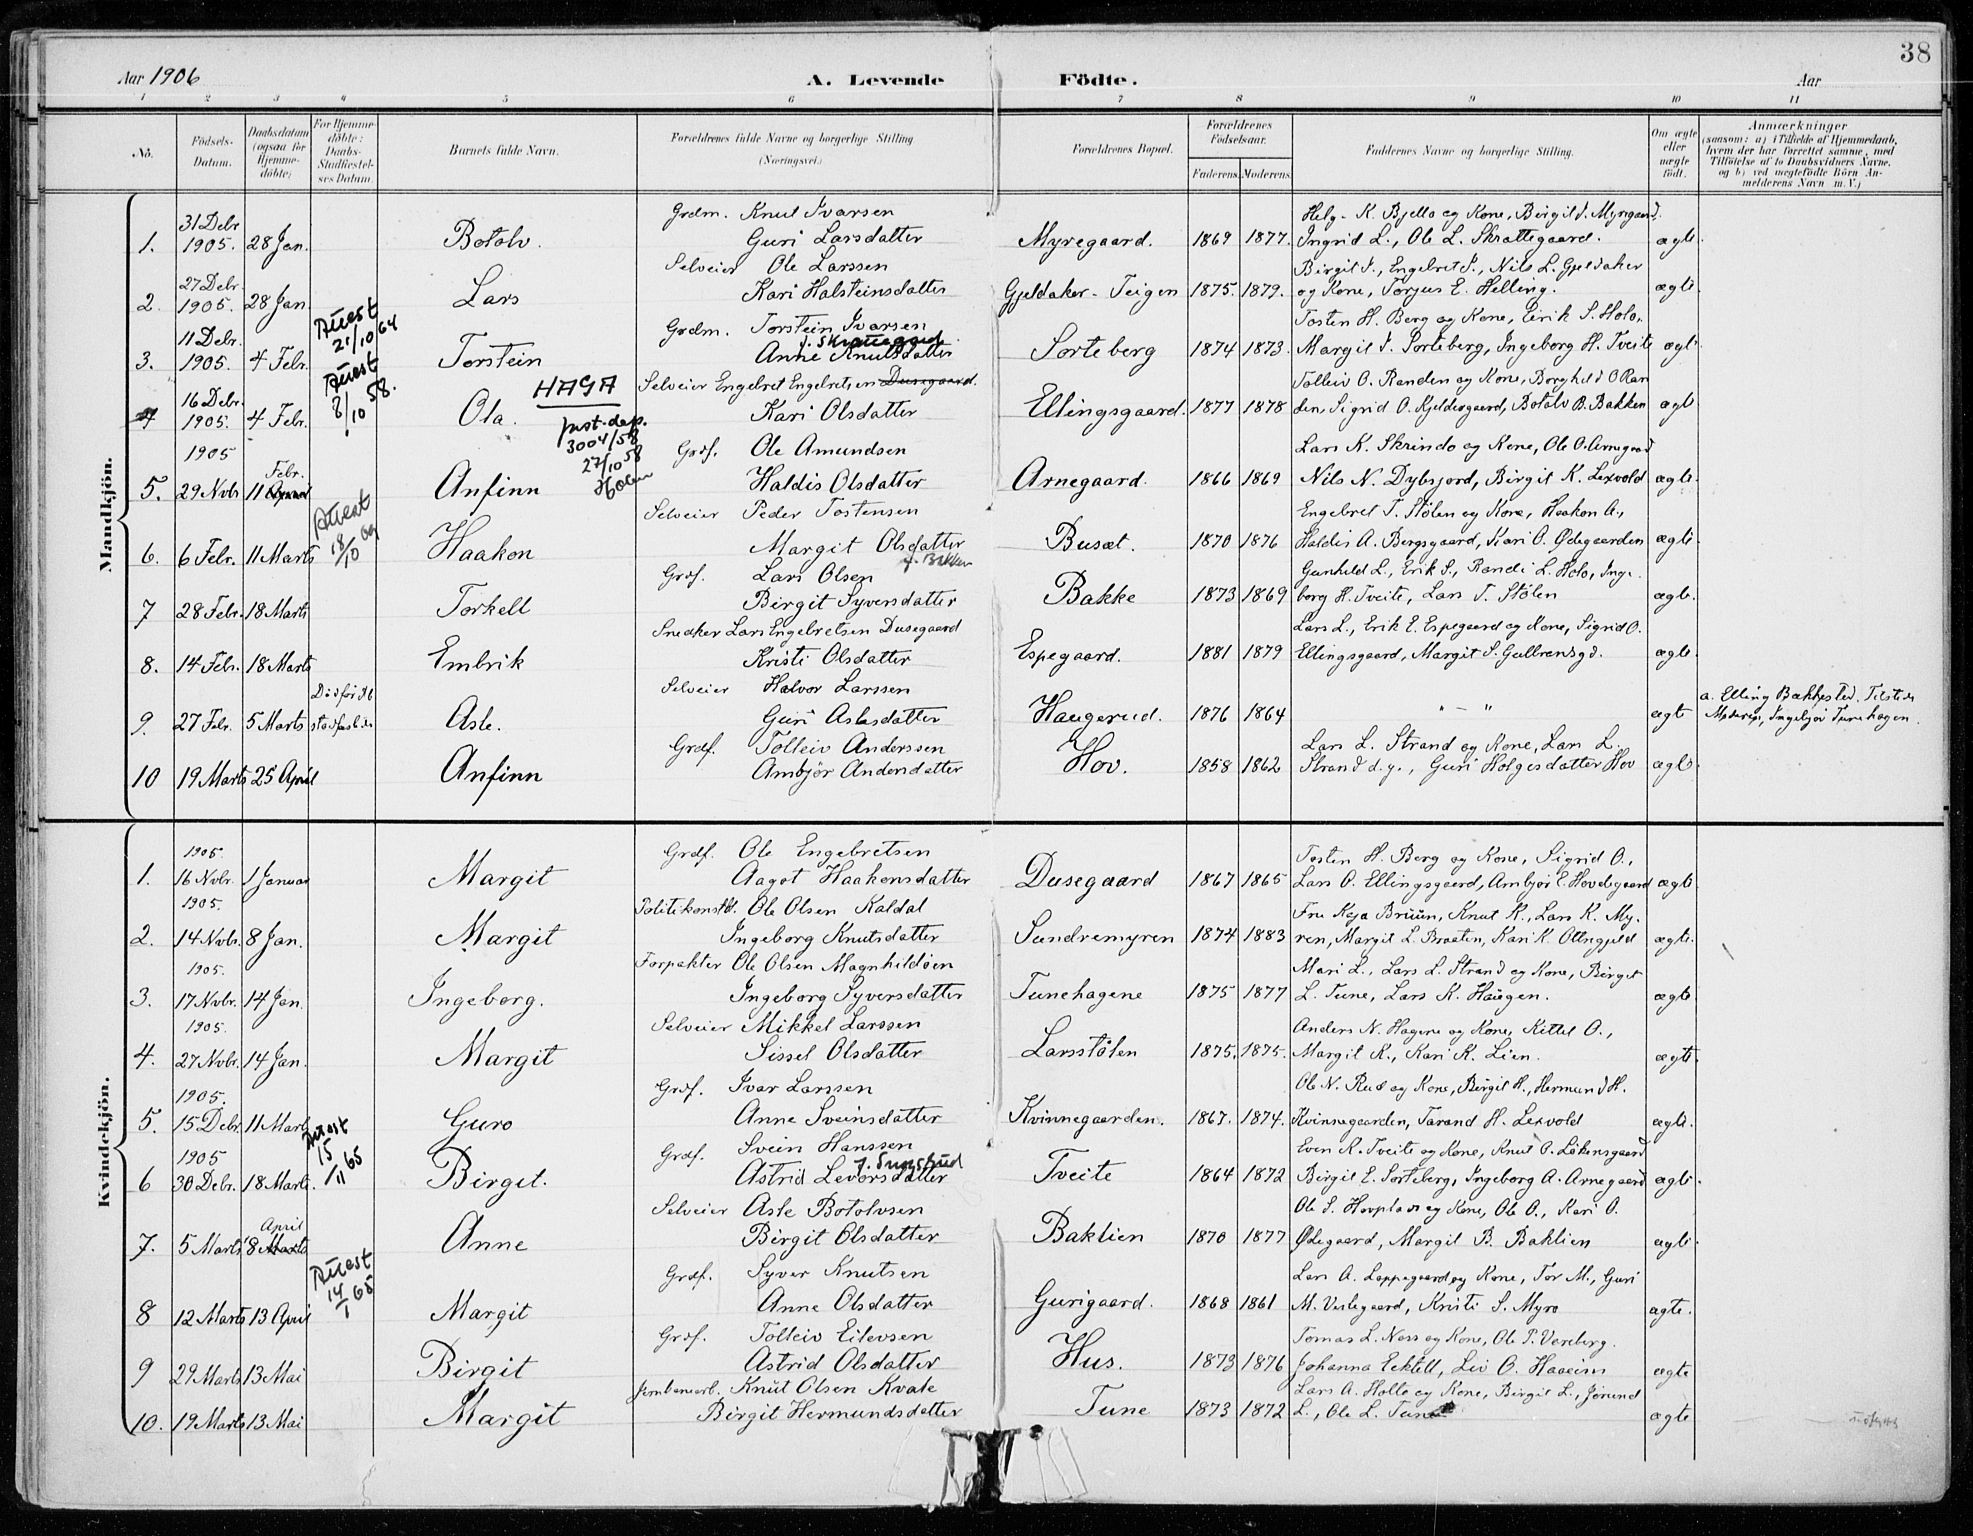 38
Aar 1906
A. Levende Födte.
Aar
1 2 3 4 5 6 7 8 9 10 11
No.
Födsels-Datum.
Daabsdatum (ogsaa for Hjemme-döbte;
For Hjemme-döbte: Daabs-Stadfæstel-ses Datum.
Barnets fulde Navn.
Forældrenes fulde Navne og borgerlige Stilling (Næringsvei.)
Forældrenes Bopæl.
Forældrenes Födselsaar.
Faderens. Moderens.
Faddernes Navne og borgerlige Stilling.
Om ægte eller uægte födt.
Anmærkninger
(saasom: a) i Tilfælde af Hjemmedaab, hvem der har forrettet samme, med Tilföielse af to Daabsvidners Navne. og b) ved uægtefödte Börn An-melderens Navn m. V.)
Mandkjön.
31 Debr. Grdm. Knut Ivarsen Helg. K. Bjella og Kone, Birgit I. Myregaard,
1. 1905. 28 Jan. Botolv. Guri Larsdatter Myregaard. 1869 1877. Ingrid L., Ole L. Skrattegaard. ægte.
27 Debr. Selveier Ole Larssen Birgit T., Engebret T., Nils L. Gjeldaker
2. 1905. 28 Jan. Lars Kari Halsteinsdatter Gjeldaker-Teigen 1875. 1879. og Kone, Torjus E. Helling. ægte.
Attest 21/10 64
11 Debr. Grdm. Torstein Ivarsen Tosten H. Berg og Kone, Eirik S. Holo,
3. 1905. 4 Febr. Torstein Anne Knutsdatter f. Skrattegard Sorteberg 1874 1873. Margit I. Sorteberg, Ingeborg H. Tveite ægte
Attest 8/10 58.
16 Debr. HAGA Selveier Engebret Engebretsen Dusegaard. Tolleiv O. Randen og Kone, Borghild O Ran
4 1905. 4 Febr. Ola. Kari Olsdatter Ellingsgaard. 1877 1878 den, Sigrid O. Kjeldesgaard, Botolv B. Bakken ægte
just. dep. 3004/58 27/10 58 Holen
1905 Grdf. Ole Amundsen Lars K. Skrindo og Kone, Ole O. Arnegaard
5. 29 Novbr. 11 Febr. Anfinn Haldis Olsdatter Arnegaard. 1866 1869 Nils N. Dybsjord, Birgit K. Lexvold ægte.
Attest 18/10 69
Selveier Peder Tostensen Engebret T. Stölen og Kone, Haakon A.,
6. 6 Febr. 11 Marts Haakon Margit Olsdatter Busæt. 1870 1876 Haldis A. Bergsgaard, Kari O. Ødegaarden ægte
f. Bakken
Grdf. Lars Olsen Gunhild L., Erik S., Randi L. Holo, Inge-
7 28 Febr. 18 Marts Torkell Birgit Syversdatter Bakke 1873 1869 borg H. Tveite, Lars T. Stölen ægte.
Snedker Lars Engebretsen Dusegaard Lars L., Erik E. Espegaard og Kone, Sigrid O.
8. 14 Febr. 18 Marts Embrik Kristi Olsdatter Espegaard. 1881 1879 Ellingsgaard, Margit S. Gulbransgd. ægte
Död før St Selveier Halvor Larssen a. Elling Bækkestad. Tilstede
9. 27 Febr. 5 Marts stadfæstelse Asle. Guri Aslesdatter Haugerud. 1876 1864 " — " ægte Moderen, Ingebjør Tunehagen.
Grdf. Tolleiv Anderssen Lars L. Strand og Kone, Lars L.
10 19 Marts 25 April Anfinn Ambjör Andersdatter Hov. 1858 1862 Strand d.y., Guri Holgesdatter Hov ægte.
Kvindekjön.
1905. Grdf. Ole Engebretsen Tosten H. Berg og Kone, Sigrid O.,
1. 16 Nvbr. 1 Januar Margit Aagot Haakensdatter Dusegaard 1867 1865 Lars O. Ellingsgaard, Ambjör E. Hovdegaard ægte
1905. Politikonstbl. Ole Olsen Kaldal Fru Kaja Bruun, Knut K., Lars K. My-
2. 14 Nvbr. 8 Jan. Margit Ingeborg Knutsdatter Sundremyren 1874 1883 ren, Margit L. Braaten, Kari K. Ollngjeld ægte.
1905. Forpakter Ole Olsen Magnhildöen Mari L., Lars L. Strand og Kone, Birgit
3. 17 Nvbr. 14 Jan. Ingeborg. Ingeborg Syversdatter Tunehagene 1875 1877 L. Tune, Lars K. Haugen. ægte
1905. Selveier Mikkel Larssen Anders N. Hagene og Kone, Kittel O.,
4. 27 Nvbr. 14 Jan. Margit Sissel Olsdatter Larsstölen 1875. 1875. Margit K., Kari K. Lien. ægte.
1905. Grdf. Ivar Larssen Ole N. Rud og Kone, Birgit H., Hermund H.
5. 15 Debr. 11 Marts Guro Anne Sveinsdatter Kvinnegaarden. 1867. 1874. Kvinnegaarden, Tarand H. Lexvold ægte.
Attest 15/11 65
1905 Grdf. Svein Hanssen Even K. Tveite og Kone, Knut O. Lökensgaard
6 30 Debr. 18 Marts. Birgit. Astrid Levorsdatter Tveite 1864 1872 Birgit E. Sorteberg, Ingeborg A. Arnegaard ægte.
Selveier Asle Botolvsen Ole S. Hovplass og Kone, Ole O., Kari O.
7. 5 Marts 8 April Anne Birgit Olsdatter Baklien 1870 1877 Ødegaard, Margit B. Baklien ægte.
Attest 14/1 65
Grdf. Syver Knutsen Lars A. Leppegaard og Kone, Tor M., Guri
8 12 Marts 13 April Margit Anne Olsdatter Gurigaard. 1868 1861 M. Veslegaard, Kristi S. Myro ægte.
Grdf. Tolleiv Eilevsen Tomas L. Ness og Kone, Ole P. Vereberg.
9 29 Marts 13 Mai Birgit Astrid Olsdatter Hus. 1873 1876 Johanna Ecktell, Liv O. Haaeim ægte
Jernbanearb. Knut Olsen Kvale Lars A. Holto og Kone, Birgit L., Jörund
10. 19 Marts 13 Mai Margit Birgit Hermundsdatter Tune 1873 1872 L., Ole L. Tune ægte